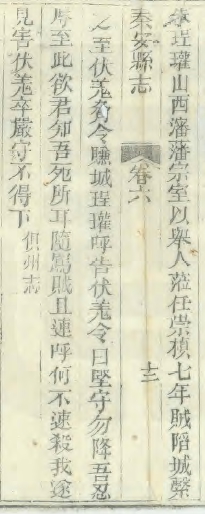 朱珵瓘山西瀋藩宗室以舉人蒞任崇楨七年賊陷城縶
秦安縣志
卷六
十三
之至伏羌脅令賺城珵瓘呼告伏羌令曰堅守勿降吾忍
辱至此欲君知吾死所耳隨罵賊且連呼何不速殺我遂
見害伏羌卒嚴守不得下
俱州志